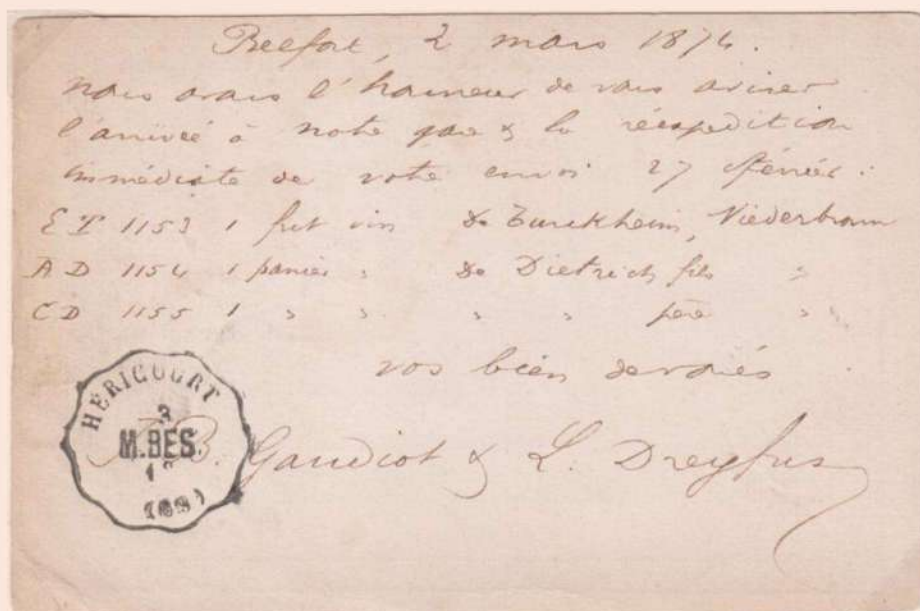 Belfort, 2 mars 1874.
Nous avons l'honneur de vous aviser
l'arrivée à notre gare & la réexpédition
immédiate de votre envoi 27 février :
E T 1153 1 fut vin De Turckheim, Niederbronn
A D 1154 1 panier " De Dietrich fils "
C D 1155 1 " " " " père "
vos bien dévoués
Gaudiot & L. Dreyfus
HERICOURT
3
M.BES.